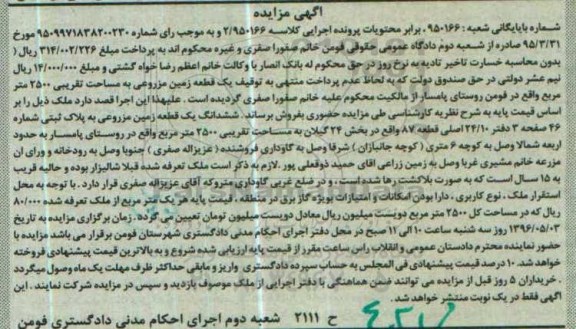 آگهی مزایده
شماره بایگانی شعبه : ۹۵۰۱۶۶ . برابر محتویات پرونده اجرایی کلاسه ۲/۹۵۰۱۶۶ و به موجب رای شماره ۹۵۰۹۹۷۱۸۳۸۲۰۰۲۳۰ مورخ
۹۵/۳/۳۱ صادره از شعبه دوم دادگاه عمومی حقوقی فومن خانم صفورا صفری و غیره محکوم اند به پرداخت مبلغ ۳۱۴/۰۰۲/۲۲۶ ریال (
بدون محاسبه خسارت تاخیر تادیه به نرخ روز در حق محکوم له بانک انصار با وکالت خانم اعظم رضا خواه گشتی و مبلغ ۱۴/۰۰۰/۰۰۰ ریال
نیم عشر دولتی در حق صندوق دولت که به لحاظ عدم پرداخت منتهی به توقیف یک قطعه زمین مزروعی به مساحت تقریبی ۲۵۰۰ متر
مربع واقع در فومن روستای پامسار از مالکیت محکوم علیه خانم صفورا صفری گردیده است . علیهذا این اجرا قصد دارد ملک ذیل را بر
اساس قیمت پایه به شرح نظریه کارشناسی طی مزایده حضوری بفروش برساند . ششدانگ یک قطعه زمین مزروعی به پلاک ثبتی شماره
۴۶ صفحه ۳ دفتر ۲۴/۱۰ اصلی قطعه ۸۷ واقع در بخش ۲۴ گیلان به مساحت تقریبی ۲۵۰۰ متر مربع واقع در روستای پامسار به حدود
اربعه شمالا وصل به کوچه ۶ متری ( کوچه جانبازان ) شرقا وصل به گاوداری فروشنده ( عزیزاله صفری ) جنوبا وصل به رودخانه و ورای ان
مزرعه خانم مشیری غربا وصل به زمین زراعی اقای حمید ذوقعلی پور . لازم به ذکر است ملک تعرفه شده قبلا شالیزار بوده و حالیه قریب
به ۱۵ سال است که به صورت بلاکشت رها شده است و در ضلع غربی گاوداری متروکه آقای عزیزاله صفری قرار دارد . با توجه به محل
استقرار ملک ، نوع کاربری ، دارا بودن امکانات و امتیازات بویژه گاز برق در منطقه ، قیمت پایه هر یک متر مربع از ملک تعرفه شده ۸۰/۰۰۰
ریال که در مساحت کل ۲۵۰۰ متر مربع دویست میلیون ریال معادل دویست میلیون تومان تعیین می گردد . زمان برگزاری مزایده به تاریخ
۱۳۹۶/۰۵/۰۳ روز سه شنبه ساعت ۱۰ الی ۱۱ صبح در محل دفتر اجرای احکام مدنی دادگستری شهرستان فومن برقرار می باشد مزایده با
حضور نماینده محترم دادستان عمومی و انقلاب راس ساعت مقرر از قیمت پایه ارزیابی شده شروع و به بالاترین قیمت پیشنهادی فروخته
خواهد شد. ۱۰ درصد قیمت پیشنهادی فی المجلس به حساب سپرده دادگستری واریز و مابقی حداکثر ظرف مهلت یک ماه وصول میگردد
. خریداران ۵ روز قبل از مزایده می توانند ضمن هماهنگی با دفتر اجرایی از ملک موصوف بازدید و سپس در مزایده شرکت نمایند . این
آگهی فقط در یک نوبت منتشر خواهد شد.
ح ۲۱۱۱ شعبه دوم اجرای احکام مدنی دادگستری فومن